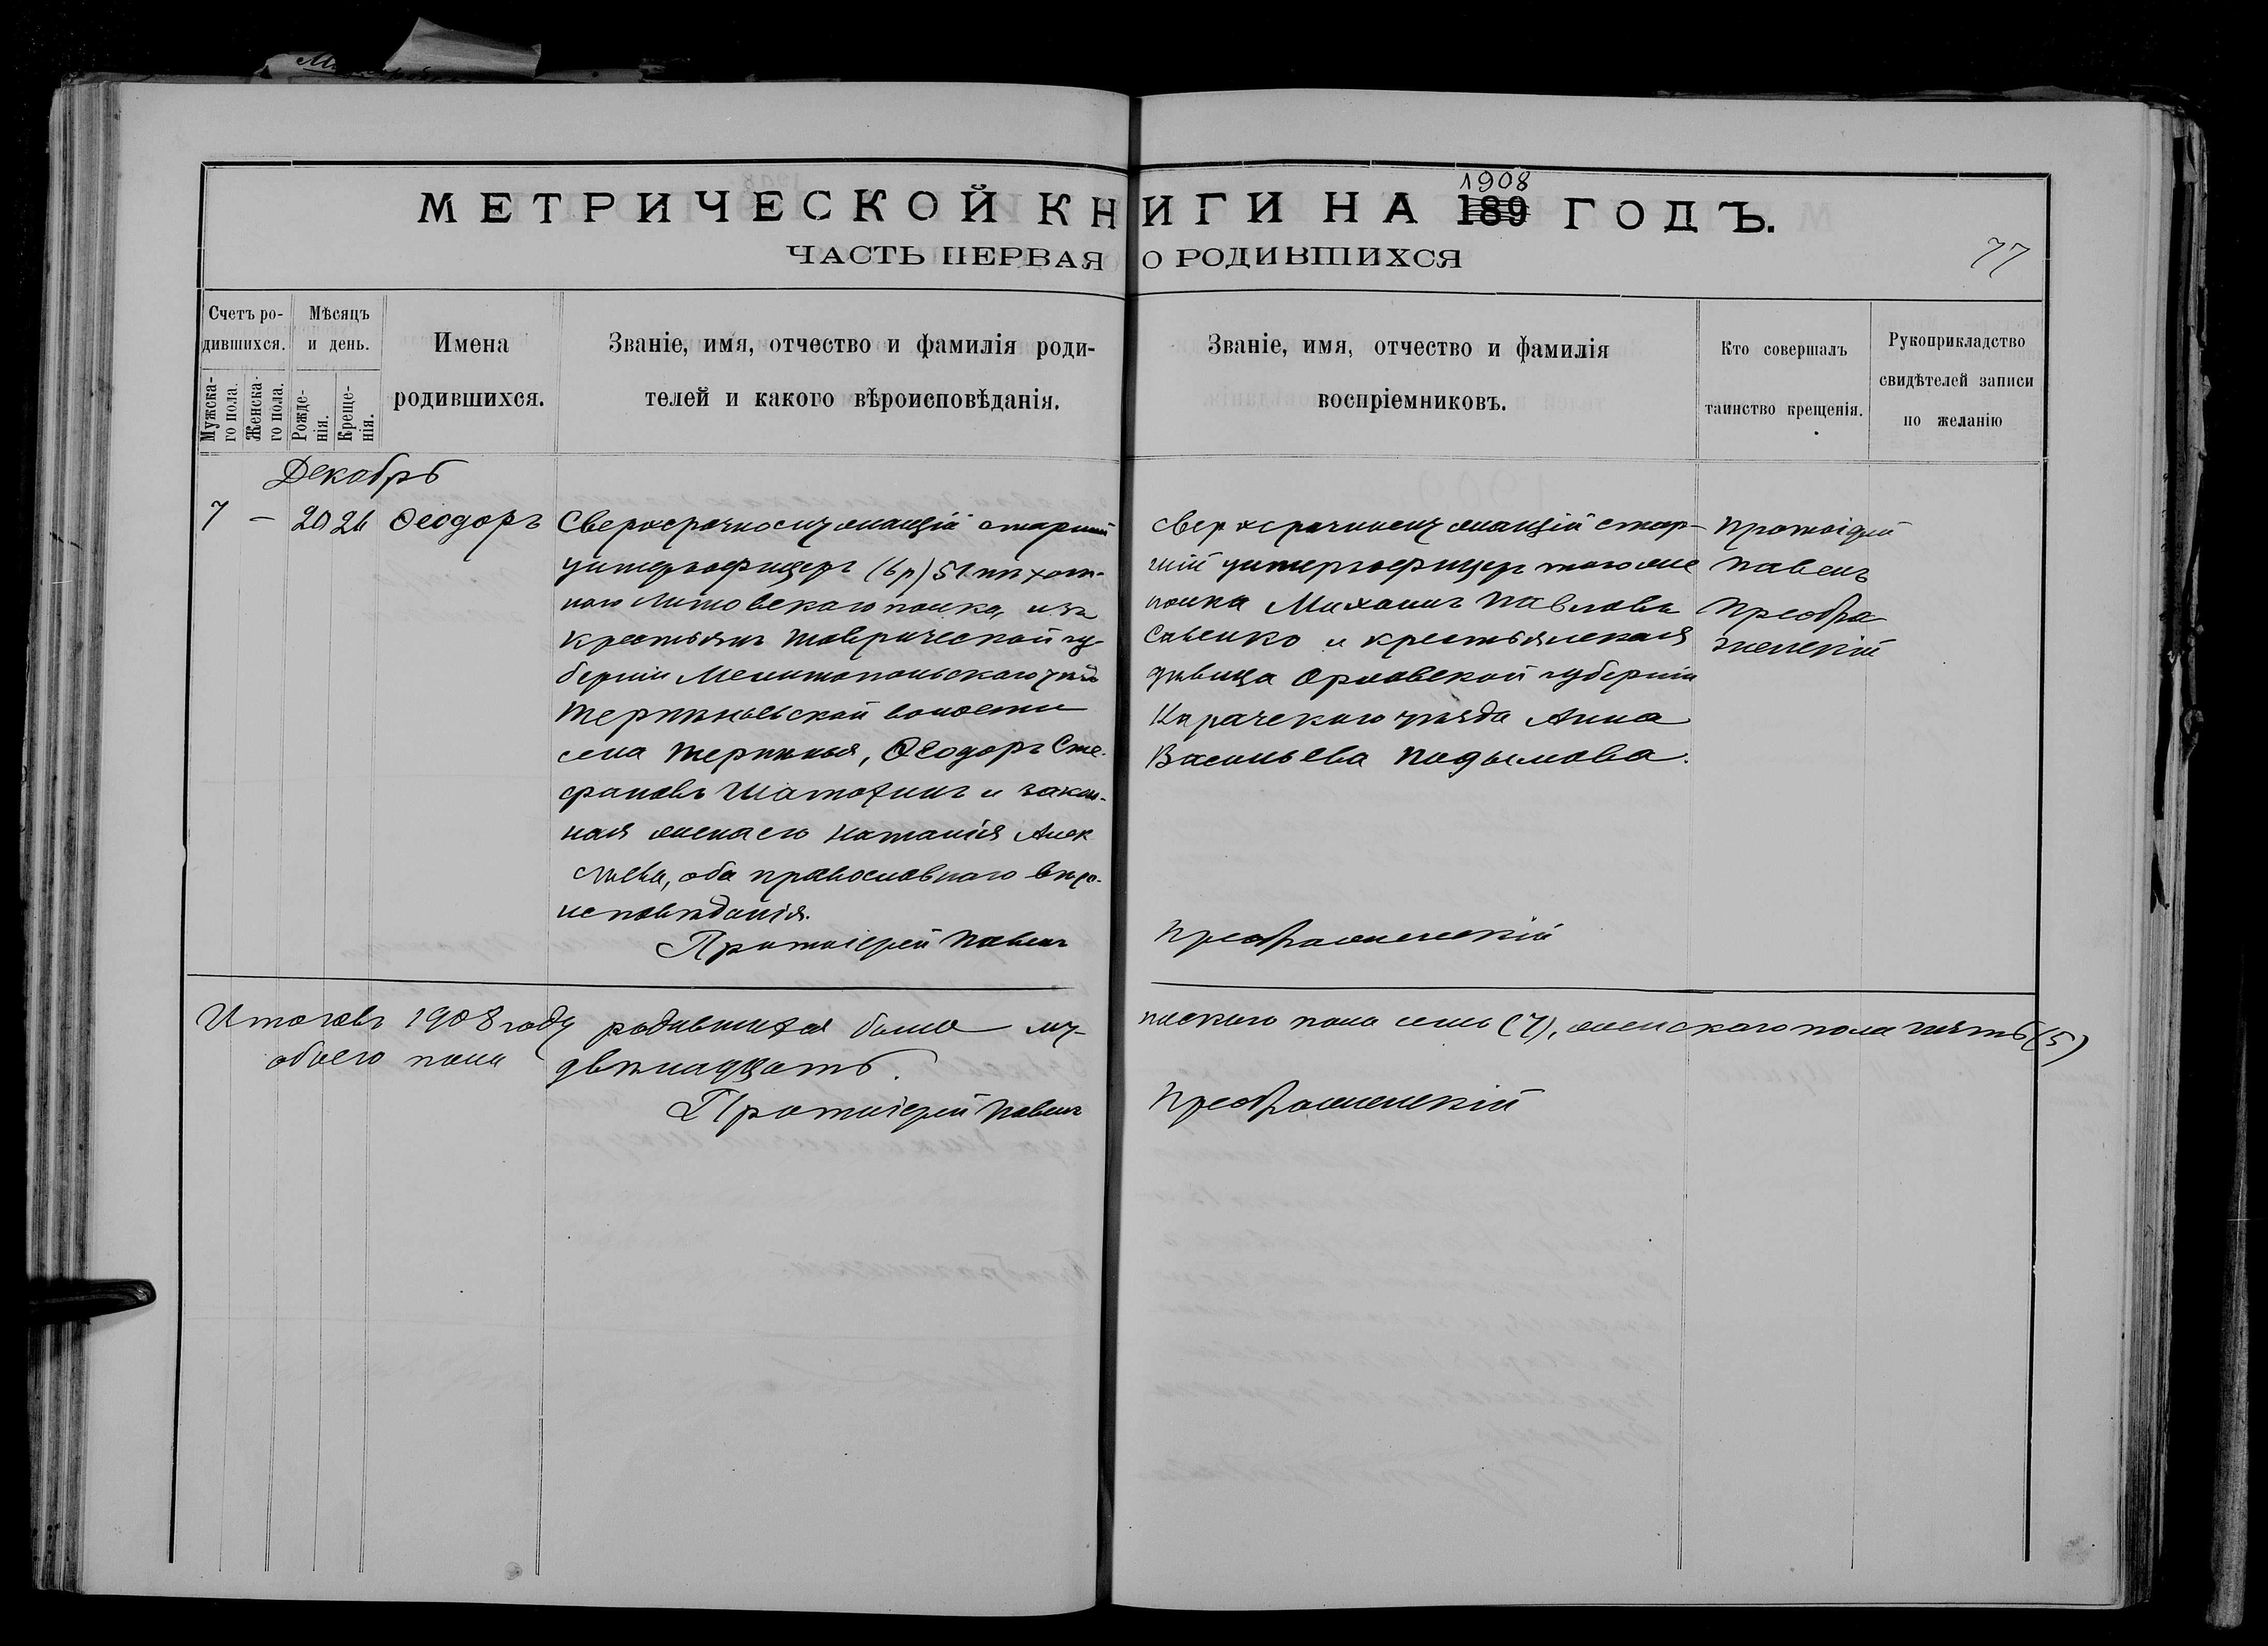 МЕТРИЧЕСКОЙ КНИГИ НА 189 1908 ГОДЪ.
ЧАСТЬ ПЕРВАЯ О РОДИВШИХСЯ
77
Счетъ ро-
дившихся.
Мужска-
го пола.
Женска-
го пола.
Мѣсяцъ
и день.
Рожде-
нія.
Креще-
нія.
Имена
родившихся.
Званіе, имя, отчество и фамилія роди-
телей и какого вѣроисповѣданія.
Званіе, имя, отчество и фамилія
воспріемниковъ.
Кто совершалъ
таинство крещенія.
Рукоприкладство
свидѣтелей записи
по желанію
Декабрь
7 — 20 26 Ѳеодоръ
Сверхсрочнослужащій старшій
унтеръофицеръ (6 р) 51 пѣхот-
наго Литовскаго полка, изъ
крестьянъ Таврической гу-
берніи Мелитопольскаго уѣзда
Терпѣньевской волости
села Терпѣнья, Ѳеодоръ Сте-
фановъ Шатохинъ и закон-
ная жена его Наталія Алек
сѣева, оба православнаго вѣро-
исповѣданія.
Протоіерей Павелъ
сверхсрочнослужащій стар-
шій унтеръофицеръ того же
полка Михаилъ Павловъ
Савенко и крестьянская
дѣвица Орловской губерніи
Карачевскаго уѣзда Анна
Васильева Подымова.
Преображенскій
Протоіерей
Павелъ
Преобра
женскій
Итого въ 1908 году родившихся было му-
жескаго пола семь (7), женскаго пола пять (5)
обоего пола двѣнадцать.
Протоіерей Павелъ
Преображенскій